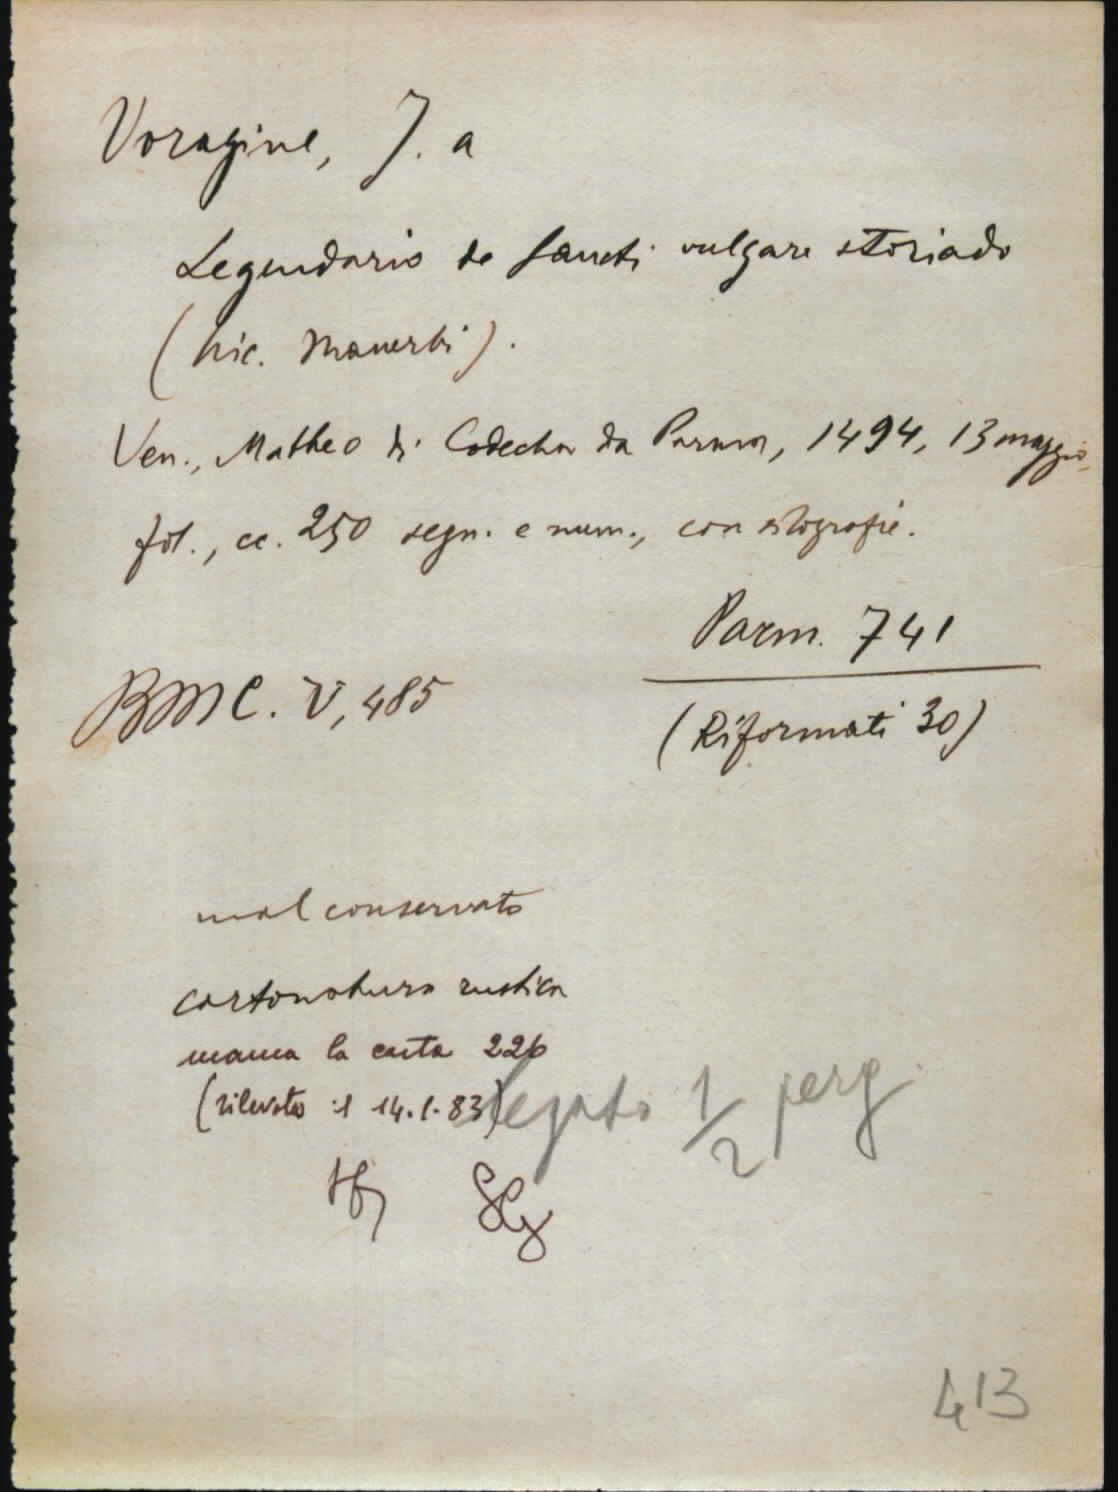 Voragine, J. a
Legendario de Sancti vulgare storiado
(Nic. Manerbi).
Ven., Matheo di Codecha da Parma, 1494, 13 maggio,
fol., cc. 250 segn. e num., con silografie.
Parm. 741
BMC. V, 485
(Riformati 30)
mal conservato
cartonatura rustica
manca la carta 226
(rilevato il 14.1.83)
legato 1/2 perg
413